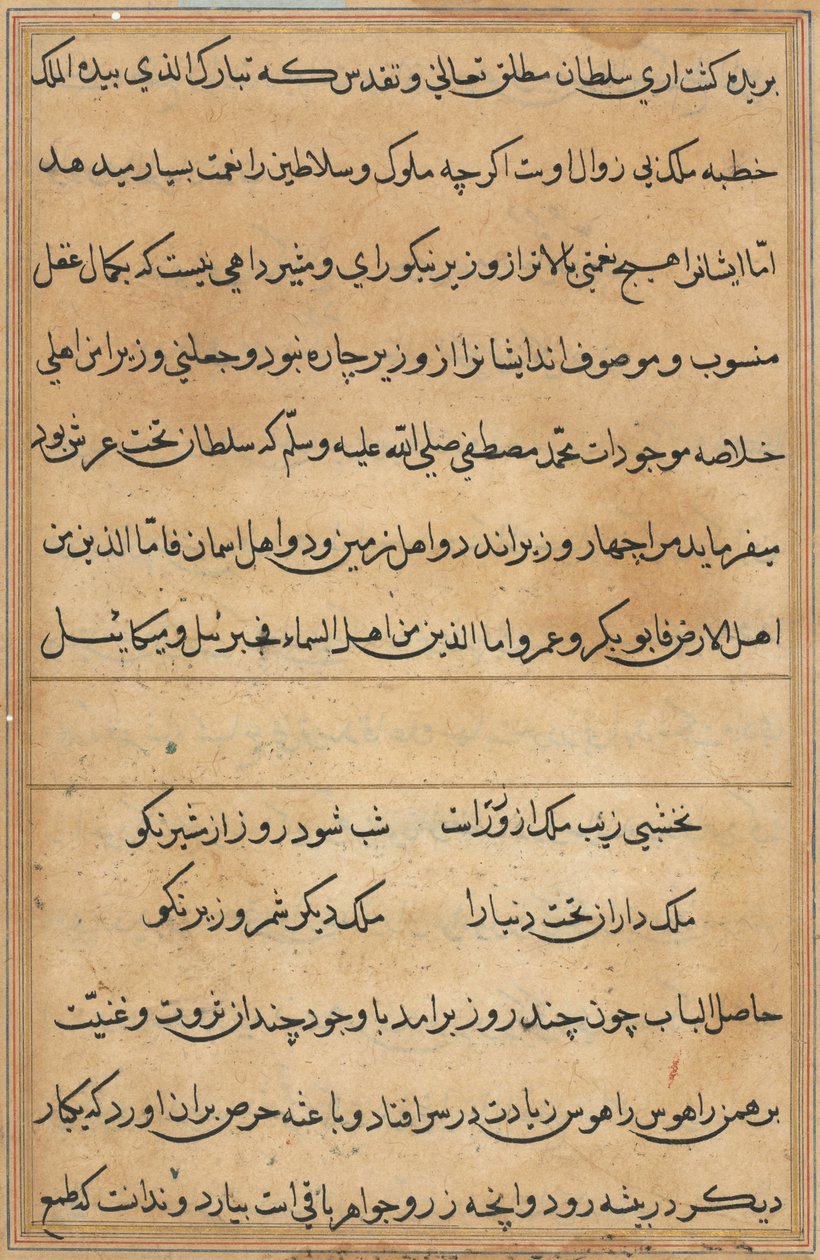 بریده کشت اری سلطان مطلق تعالی و تقدس که تبارک الذی بیده الملک
خطبه ملک بی زوال اوست اکرچه ملوک و سلاطین را نعمت بسیار میدهد
امّا ایشانرا هیچ نعمتی بالاتر از وزیر نیکورای و مشیر داهی نیست که بکمال عقل
منسوب و موصوف اند ایشانرا از وزیر چاره نبود وجعلنی وزیرا من اهلی
خلاصه موجودات محمّد مصطفی صلی اللّه علیه وسلّم که سلطان تخت عرش بود
میفرماید مرا چهار وزیراند دو اهل زمین و دو اهل اسمان فامّا الذین من
اهل الارض فابوبکر و عمر و اما الذین من اهل السماء فجبرئیل و میکائیل
نخشبی زیب ملک از وزراست شب شود روز از مشیر نکو
ملک داران تخت دنیارا ملک دیکر شمر وزیر نکو
حاصل الباب چون چند روز برامد با وجود چندان ثروت و غنیّت
برهمن را هوس زیادت در سر افتاد و باعثه حرص بران اورد که یکبار
دیکر در بیشه رود و انچه زر و جواهر باقی است بیارد و ندانست که طمع